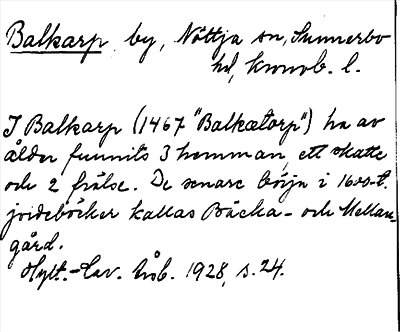 Balkarp by, Nöttja sn, Sunnerbo
hd, kronob. l.
I Balkarp (1467 "Balkætorp") ha av
ålder funnits 3 hemman, ett skatte
och 2 frälse. De senare börja i 1600-t.
jordeböcker kallas Bäcka- och Mellan-
gård.
Hylt.-Cav. Årsb. 1928, s. 24.